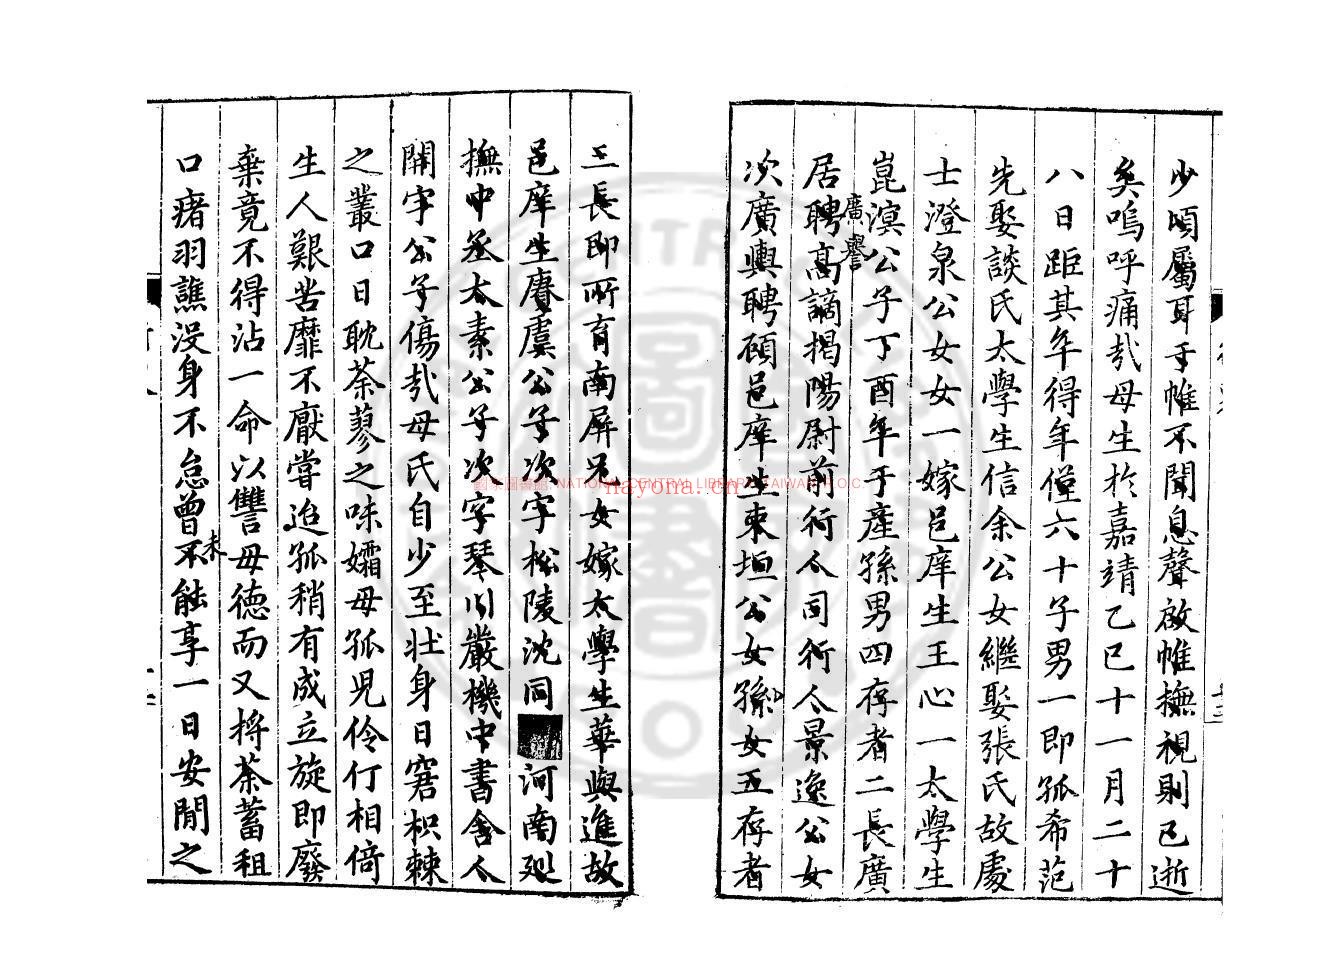 少頃屬耳于帷不聞息聲啟帷撫視則已逝
矣嗚呼痛哉母生於嘉靖乙巳十一月二十
八日距其年得年僅六十子男一即孤希范
先娶談氏太學生信余公女繼娶張氏故處
士澄泉公女女一嫁邑庠生王心一太學生
崑溟公子丁酉年于產孫男四存者二長廣
居聘高謫揭陽尉前行人司行人景逸公女
廣譽
次廣輿聘顧邑庠生東垣公女孫女五存者
三長即所育南屏兄女嫁太學生華與進故
邑庠生賡虞公子次字松陵沈同河南廵
撫中丞太素公子次字琴川嚴機中書舍人
開宇公子傷哉母氏自少至壯身日窘枳棘
之叢口日耽荼蓼之味孀母孤児伶仃相倚
生人艱苦靡不厭嘗迨孤稍有成立旋即廢
棄竟不得沾一命以讐母德而又捋荼蓄租
口瘏羽譙没身不怠曾不能享一日安閒之
未
國家圖書館 NATIONAL CENTRAL LIBRARY, TAIWAN R.O.C
nayona.cn